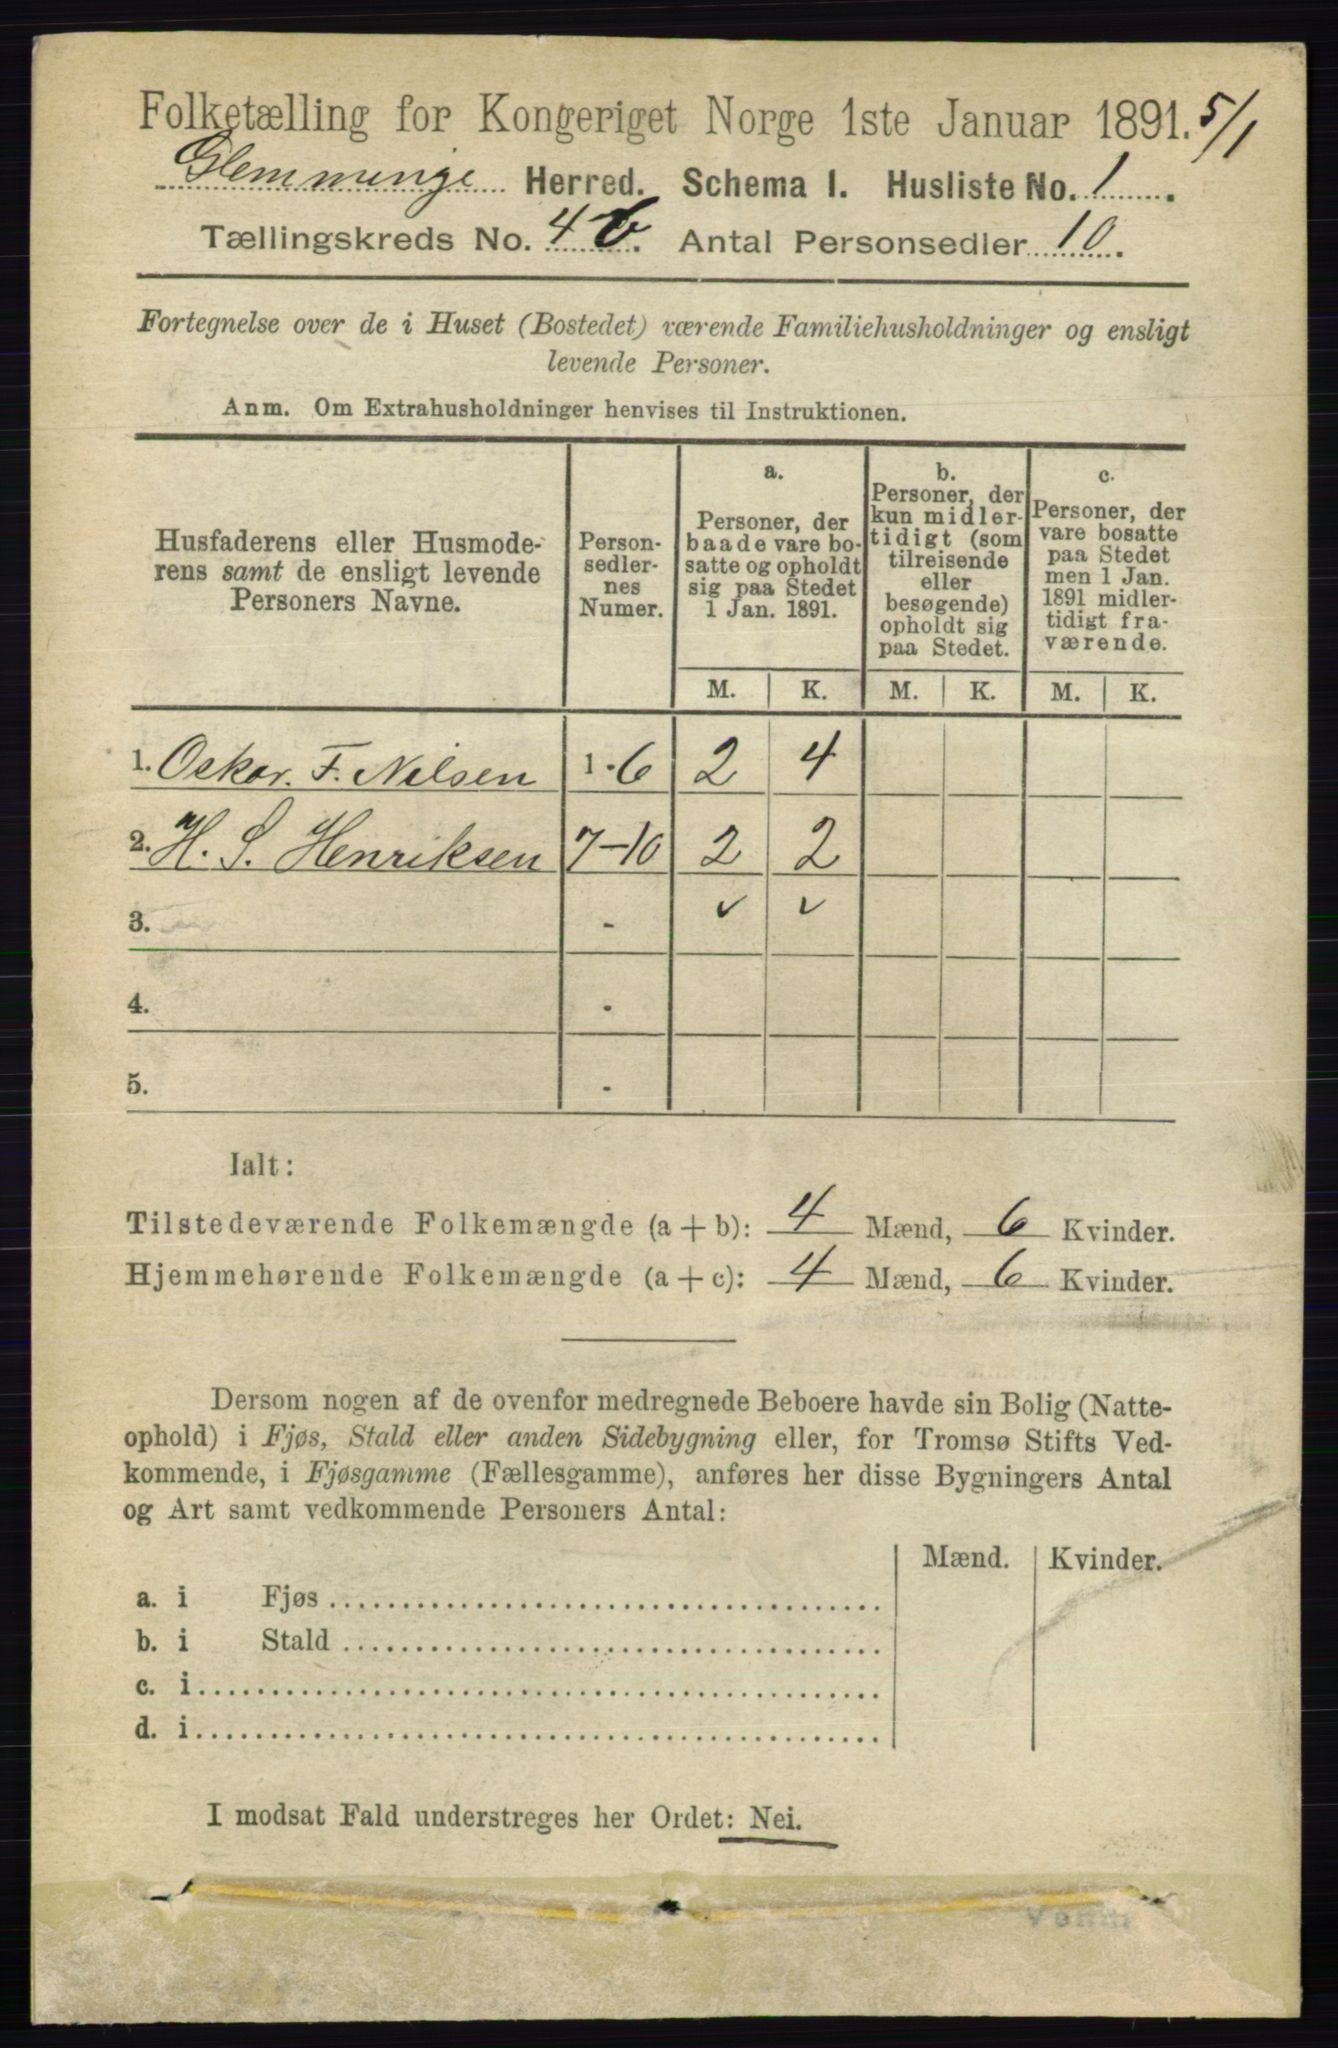 Folketælling for Kongeriget Norge 1ste Januar 1891. 5/1
Glemminge Herred. Schema I. Husliste No. 1.
Tællingskreds No. 4 b. Antal Personsedler 10.
Fortegnelse over de i Huset (Bostedet) værende Familiehusholdninger og ensligt
levende Personer.
Anm. Om Extrahusholdninger henvises til Instruktionen.
Husfaderens eller Husmode-
rens samt de ensligt levende
Personers Navne.
Person-
sedler-
nes
Numer.
a.
Personer, der
baade vare bo-
satte og opholdt
sig paa Stedet
1 Jan. 1891.
b.
Personer, der
kun midler-
tidigt (som
tilreisende
eller
besøgende)
opholdt sig
paa Stedet.
c.
Personer, der
vare bosatte
paa Stedet
men 1 Jan.
1891 midler-
tidigt fra-
værende.
M. K. M. K. M. K.
1. Oskar. F. Nilsen 1-6 2 4
2. H. S. Henriksen 7-10 2 2
3. - ✓ ✓
4. -
5. -
Ialt:
Tilstedeværende Folkemængde (a + b): 4 Mænd, 6 Kvinder.
Hjemmehørende Folkemængde (a + c): 4 Mænd, 6 Kvinder.
Dersom nogen af de ovenfor medregnede Beboere havde sin Bolig (Natte-
ophold) i Fjøs, Stald eller anden Sidebygning eller, for Tromsø Stifts Ved-
kommende, i Fjøsgamme (Fællesgamme), anføres her disse Bygningers Antal
og Art samt vedkommende Personers Antal:
Mænd. Kvinder.
a. i Fjøs
b. i Stald
c. i
d. i
I modsat Fald understreges her Ordet: Nei.